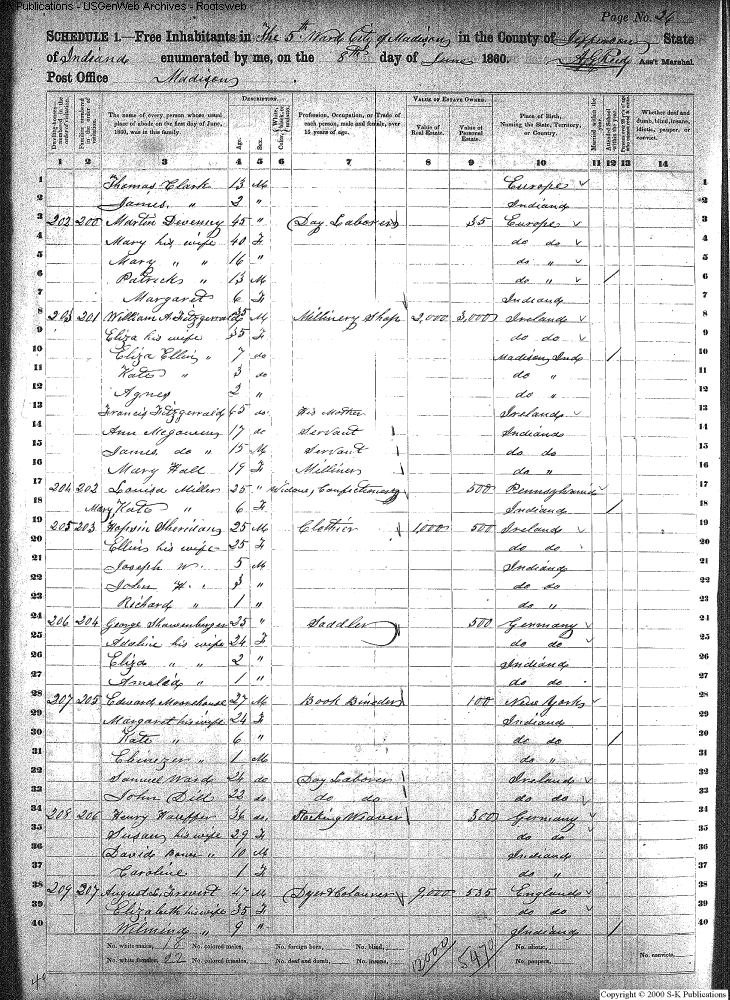 Publications - USGenWeb Archives - Rootsweb
Page No. 26
SCHEDULE 1.—Free Inhabitants in The 5th Ward City of Madison in the County of Jefferson State
of Indiana enumerated by me, on the 8th day of June 1860. Ass't Marshal.
Post Office Madison
Dwelling-houses numbered in the order of visitation. Families numbered in the order of visitation. The name of every person whose usual place of abode on the first day of June, 1860, was in this family. DESCRIPTION. Age. Sex. Color, Profession, Occupation, or Trade of each person, male and female, over 15 years of age. VALUE OF ESTATE OWNED. Value of Real Estate. Value of Personal Estate. Place of Birth, Naming the State, Territory, or Country. Married within the year. Attended School within the year. Whether deaf and dumb, blind, insane, idiotic, pauper, or convict.
1 2 3 4 5 6 7 8 9 10 11 12 13 14
1 Thomas Clark 13 M Europe 1
2 James " 2 " Indiana 2
3 202 200 Martin Devenney 45 " Day Laborer 35 Europe 3
4 Mary his wife 40 F do do 4
5 Mary " " 16 " do " 5
6 Patrick " 13 M do " / 6
7 Margaret 6 F Indiana 7
8 203 201 William A. Fitzgerrald 35 M Millinery Shop 2,000 3,000 Ireland 8
9 Eliza his wife 35 F do do 9
10 Eliza Ellen " 7 do Madison Ind / 10
11 Kate " 3 do do " 11
12 Agnes 2 " do " 12
13 Francis Fitzgerrald 65 do His Mother Ireland 13
14 Ann 17 do Servant Indiana 14
15 James do " 15 M Servant do do 15
16 Mary Hall 19 F Milliner do " 16
17 204 202 Louisa Miller 25 " Widow, Confectionery 500 Pennsylvania 17
18 Mary Kate " 6 F Indiana / 18
19 205 203 Sheridan 25 M Clothier 1,000 500 Ireland 19
20 Ellen his wife 25 F do do 20
21 Joseph W. 5 M Indiana 21
22 John H. 3 " do do 22
23 Richard " 1 " do " 23
24 206 204 George 25 " Saddler 500 Germany 24
25 Adaline his wife 24 F do do 25
26 Eliza " " 2 " Indiana 26
27 Amelia " 1 " do do 27
28 207 205 Edward Moorehouse 27 M Book Binder 100 New York 28
29 Margaret his wife 24 F Indiana 29
30 Kate " 6 " do do / 30
31 Ebenezer " 1 M do " 31
32 Samuel Ward 24 do Day Laborer Ireland 32
33 John Dill 22 do do do do do 33
34 208 206 Henry 36 do Stocking Weaver 300 Germany 34
35 Susan his wife 29 F do do 35
36 David " 10 M Indiana 36
37 Caroline 1 F do " 37
38 209 207 August L. 47 M Dyer & Colourer 9,000 535 England 38
39 Elizabeth his wife 35 F do do 39
40 9 " Indiana / 40
No. white males, 18 No. colored males, No. foreign born, No. blind, No. idiotic, No. convicts,
No. white females, 22 No. colored females, No. deaf and dumb, No. insane, 12000 5470 No. paupers,
Copyright © 2000 S-K Publications